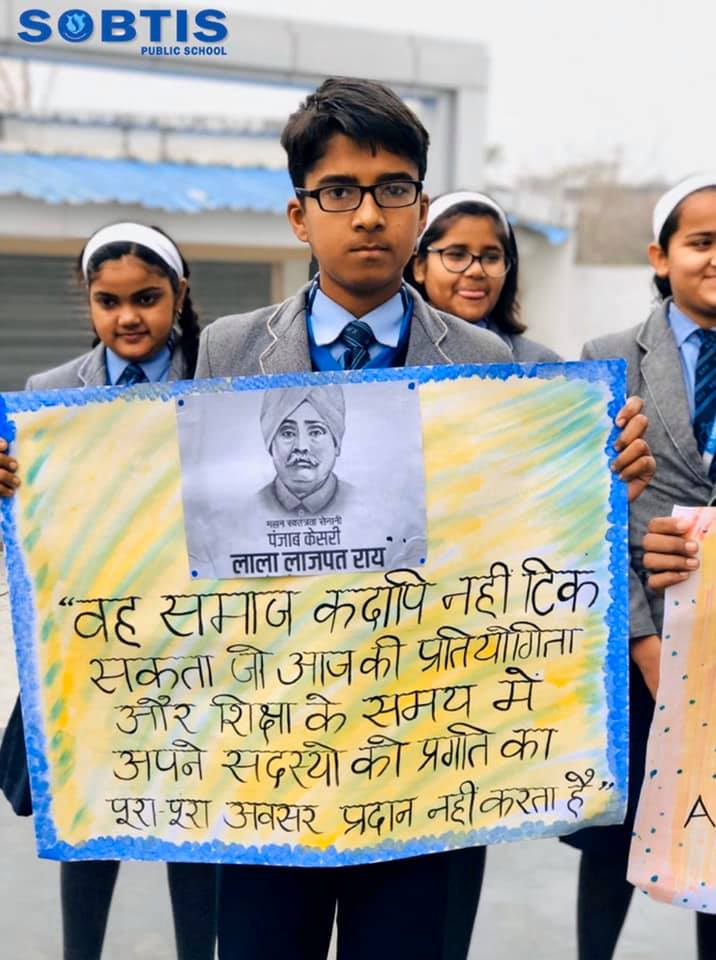 SOBTIS
PUBLIC SCHOOL
महान स्वतंत्रता सेनानी
पंजाब केसरी
लाला लाजपत राय
“वह समाज कदापि नहीं टिक
सकता जो आज की प्रतियोगिता
और शिक्षा के समय में
अपने सदस्यो को प्रगति का
पूरा-पूरा अवसर प्रदान नहीं करता है”
A